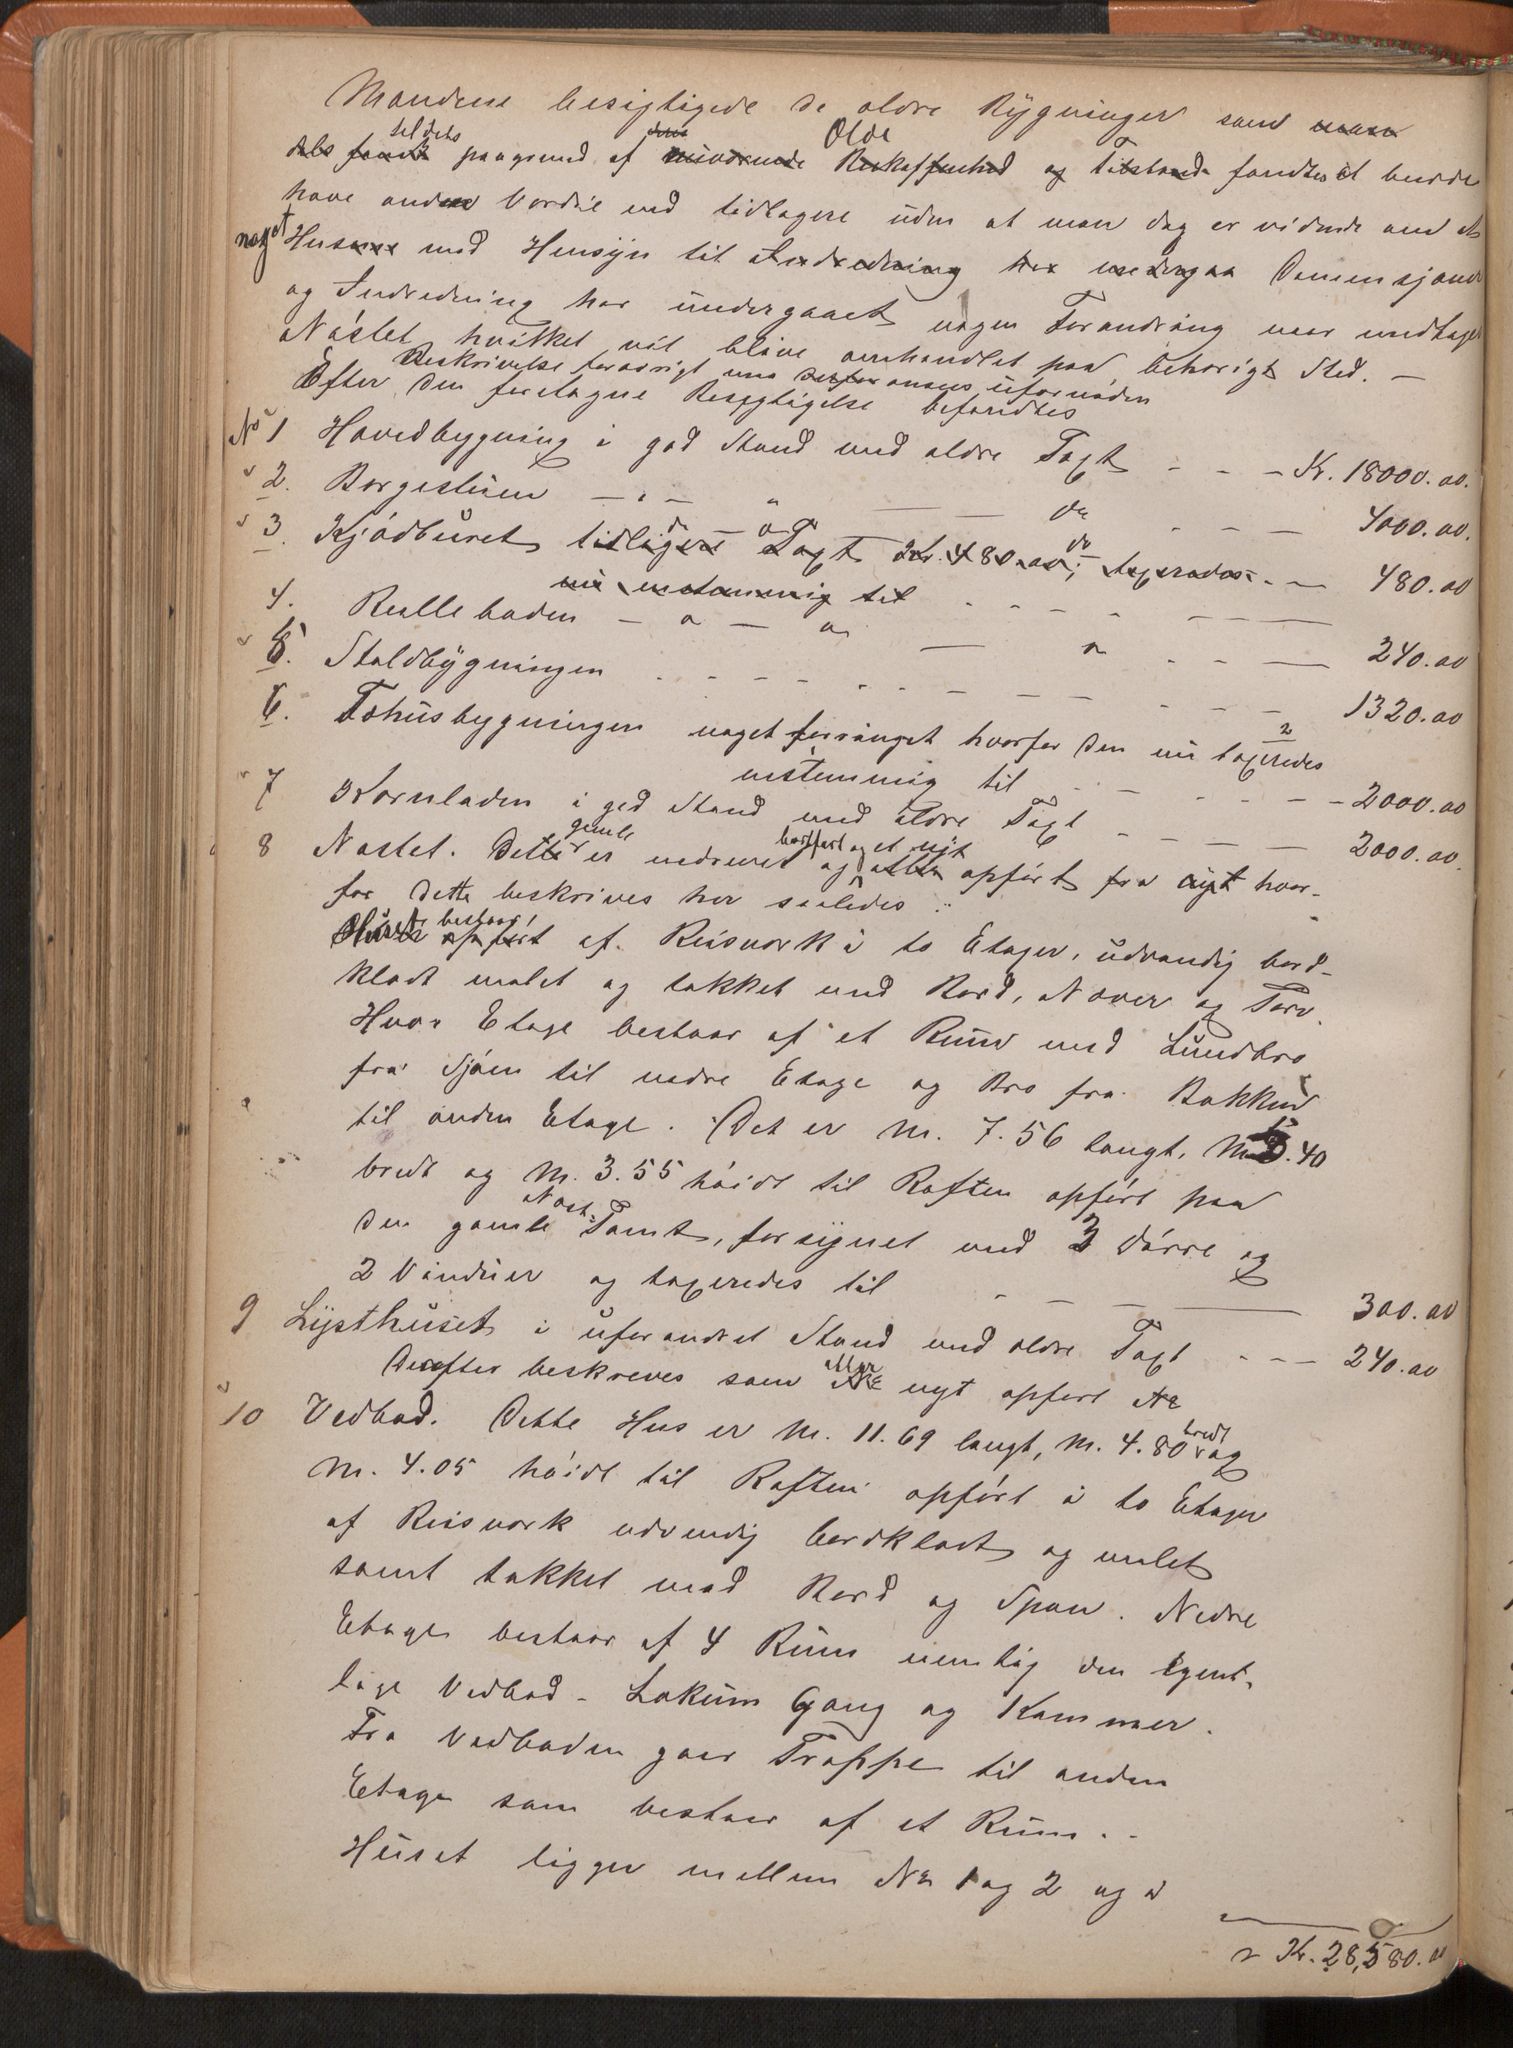 Mændene besigtigede de ældre Bygninger som man
tildels dens Ælde
dels fandt paagrund af nuværende Beskaffenhed og Tilstand fandtes at burde
have anden Værdie end tidlagere uden at man dog er vidende om at
noget Husene med Hensyn til Indredning har undergaa Demensjoner
og Indredning har undergaaet nogen Forandring naar undtages
Nøstet hvilket vil blive omhandlet paa behørigt Sted. —
Beskrivelse forøvrigt ansees ufornøden
Efter den foretagne Besigtigelse befandtes
No 1 Hovedbygning i god Stand med ældre Taxt - - - Kr. 18000.00.
2. Borgestuen — " — " — — do - - — 4000.00.
3. Kjødburet tidligere Taxt Kr. 480.00, taxeredes - — 480.00
nu enstemmig til
4. Rulleboden — " — " — " - - — 240.00
5. Staldbygningen - - - - - - - - 1320.00
6. Fæhusbygningen noget forringet hvorfor den nu taxeredes
enstemmig til - - - - - 2000.00
7 Kornladen i god Stand med ældre Taxt - - - — 2000.00.
gamle bortført og et nyt
8 Nøstet. Dette er nedrevet og opført fra nyt hvor-
for dette beskrives her saaledes:
Huset bestaar opført af Reisværk i to Etager, udvendig bord-
klædt malet og tækket med Bord, Næver og Torv.
Hver Etage bestaar af et Rum med Lundbro
fra Sjøen til nedre Etage og Bro fra Bakken
til anden Etage. Det er M. 7.56 langt, M. 5.40
bredt og M. 3.55 høidt til Raften opført paa
den gamle Nøst-Tomt, forsynet med 3 Dørre og
2 Vinduer og taxeredes til - — — 300.00
9 Lysthuset i uforandret Stand med ældre Taxt - - - 240.00
Derefter beskreves som nyt opført No
10 Vedbod. Dette Hus er M. 11.69 langt, M. 4.80 bredt og
M. 4.05 høidt til Raften opført i to Etager
af Reisværk udvendig bordklædt og malet
samt tækket med Bord og Spaan. Nedre
Etage bestaar af 4 Rum nemlig den egent-
lige Vedbod - Lokum Gang og Kammer.
Fra Vedboden gaar Trappe til anden
Etage som bestaar af et Rum. -
Huset ligger mellem No 1 og 2 og
Kr. 28,580.00